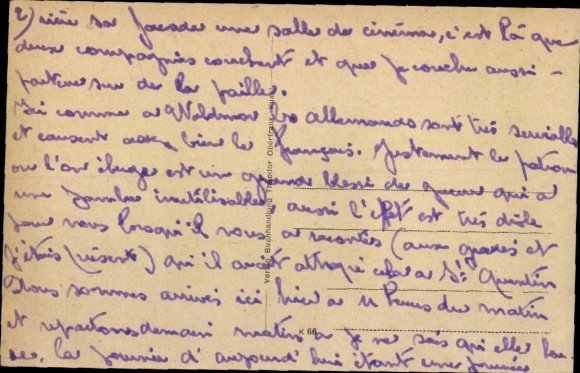 2) sa facade une salle de cinéma, c'est là que
deux compagnies couchent et que je couche aussi -
sur de la paille.
Ici comme a les allemands sont très serviables
et causent assez bien le français. Justement le patron
ou l'on loge est un grand blessé de guerre qui a
une jambe inutilisable, aussi l'effet est très drôle
pour nous lorsqu'il nous a racontés (aux gradés et
j'étais présent) qu'il avait attrapé cela a St Quentin
Nous sommes arrivés ici hier a 11 heures du matin
et repartons demain matin a je ne sais qu'elle heu-
re, la journée d'aujourd'hui étant une journée
Verlag Buchhandlung Theodor
K 66